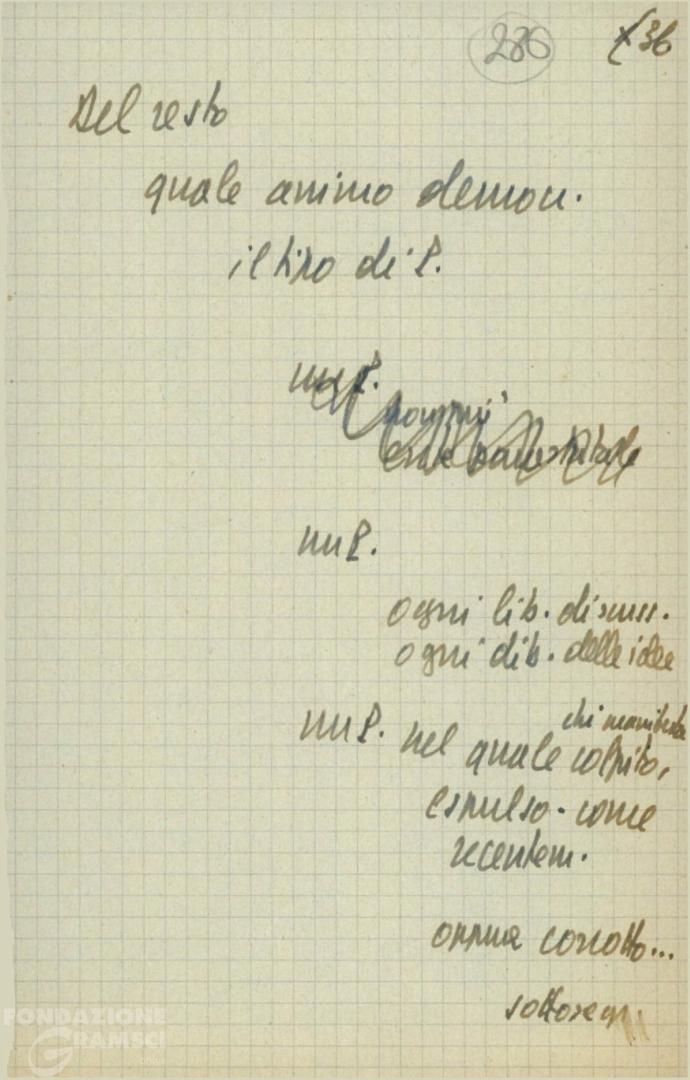 236
36
Del resto
quale animo demon.
il tiro di P.
un P.
un P.
ogni lib. discuss.
ogni dib. delle idee
un P. nel quale chi manifesta
colpito,
espulso - come
recentem.
oppure corrotto...
sottosegr.
FONDAZIONE
GRAMSCI